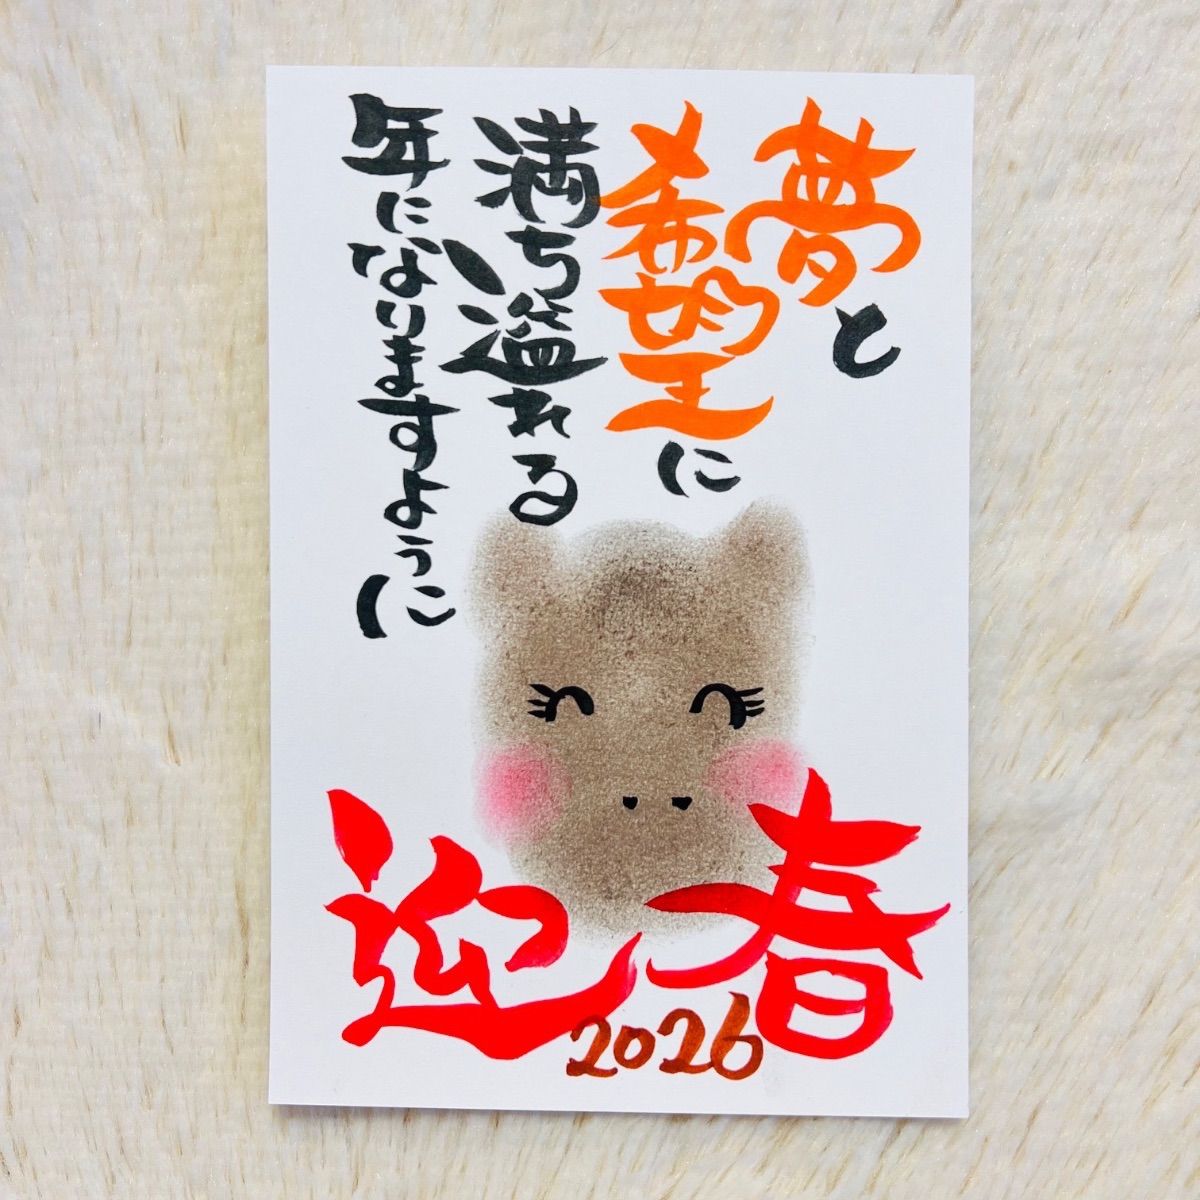 夢と
希望に
満ち溢れる
年になりますように
迎春
2026